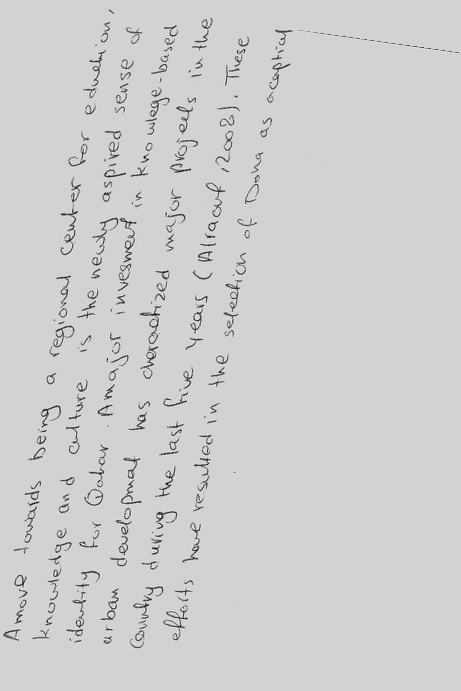 Amove towards being a regional center for eduction,
knowledge and culture is the newly aspired sense of
identity for Qatar. Amajor invesment in knowlege-based
urban developmat has charactized major projects in the
Country during the last five years (Alraouf, 2008). These
efforts have resulted in the selection of Doha as acaptial